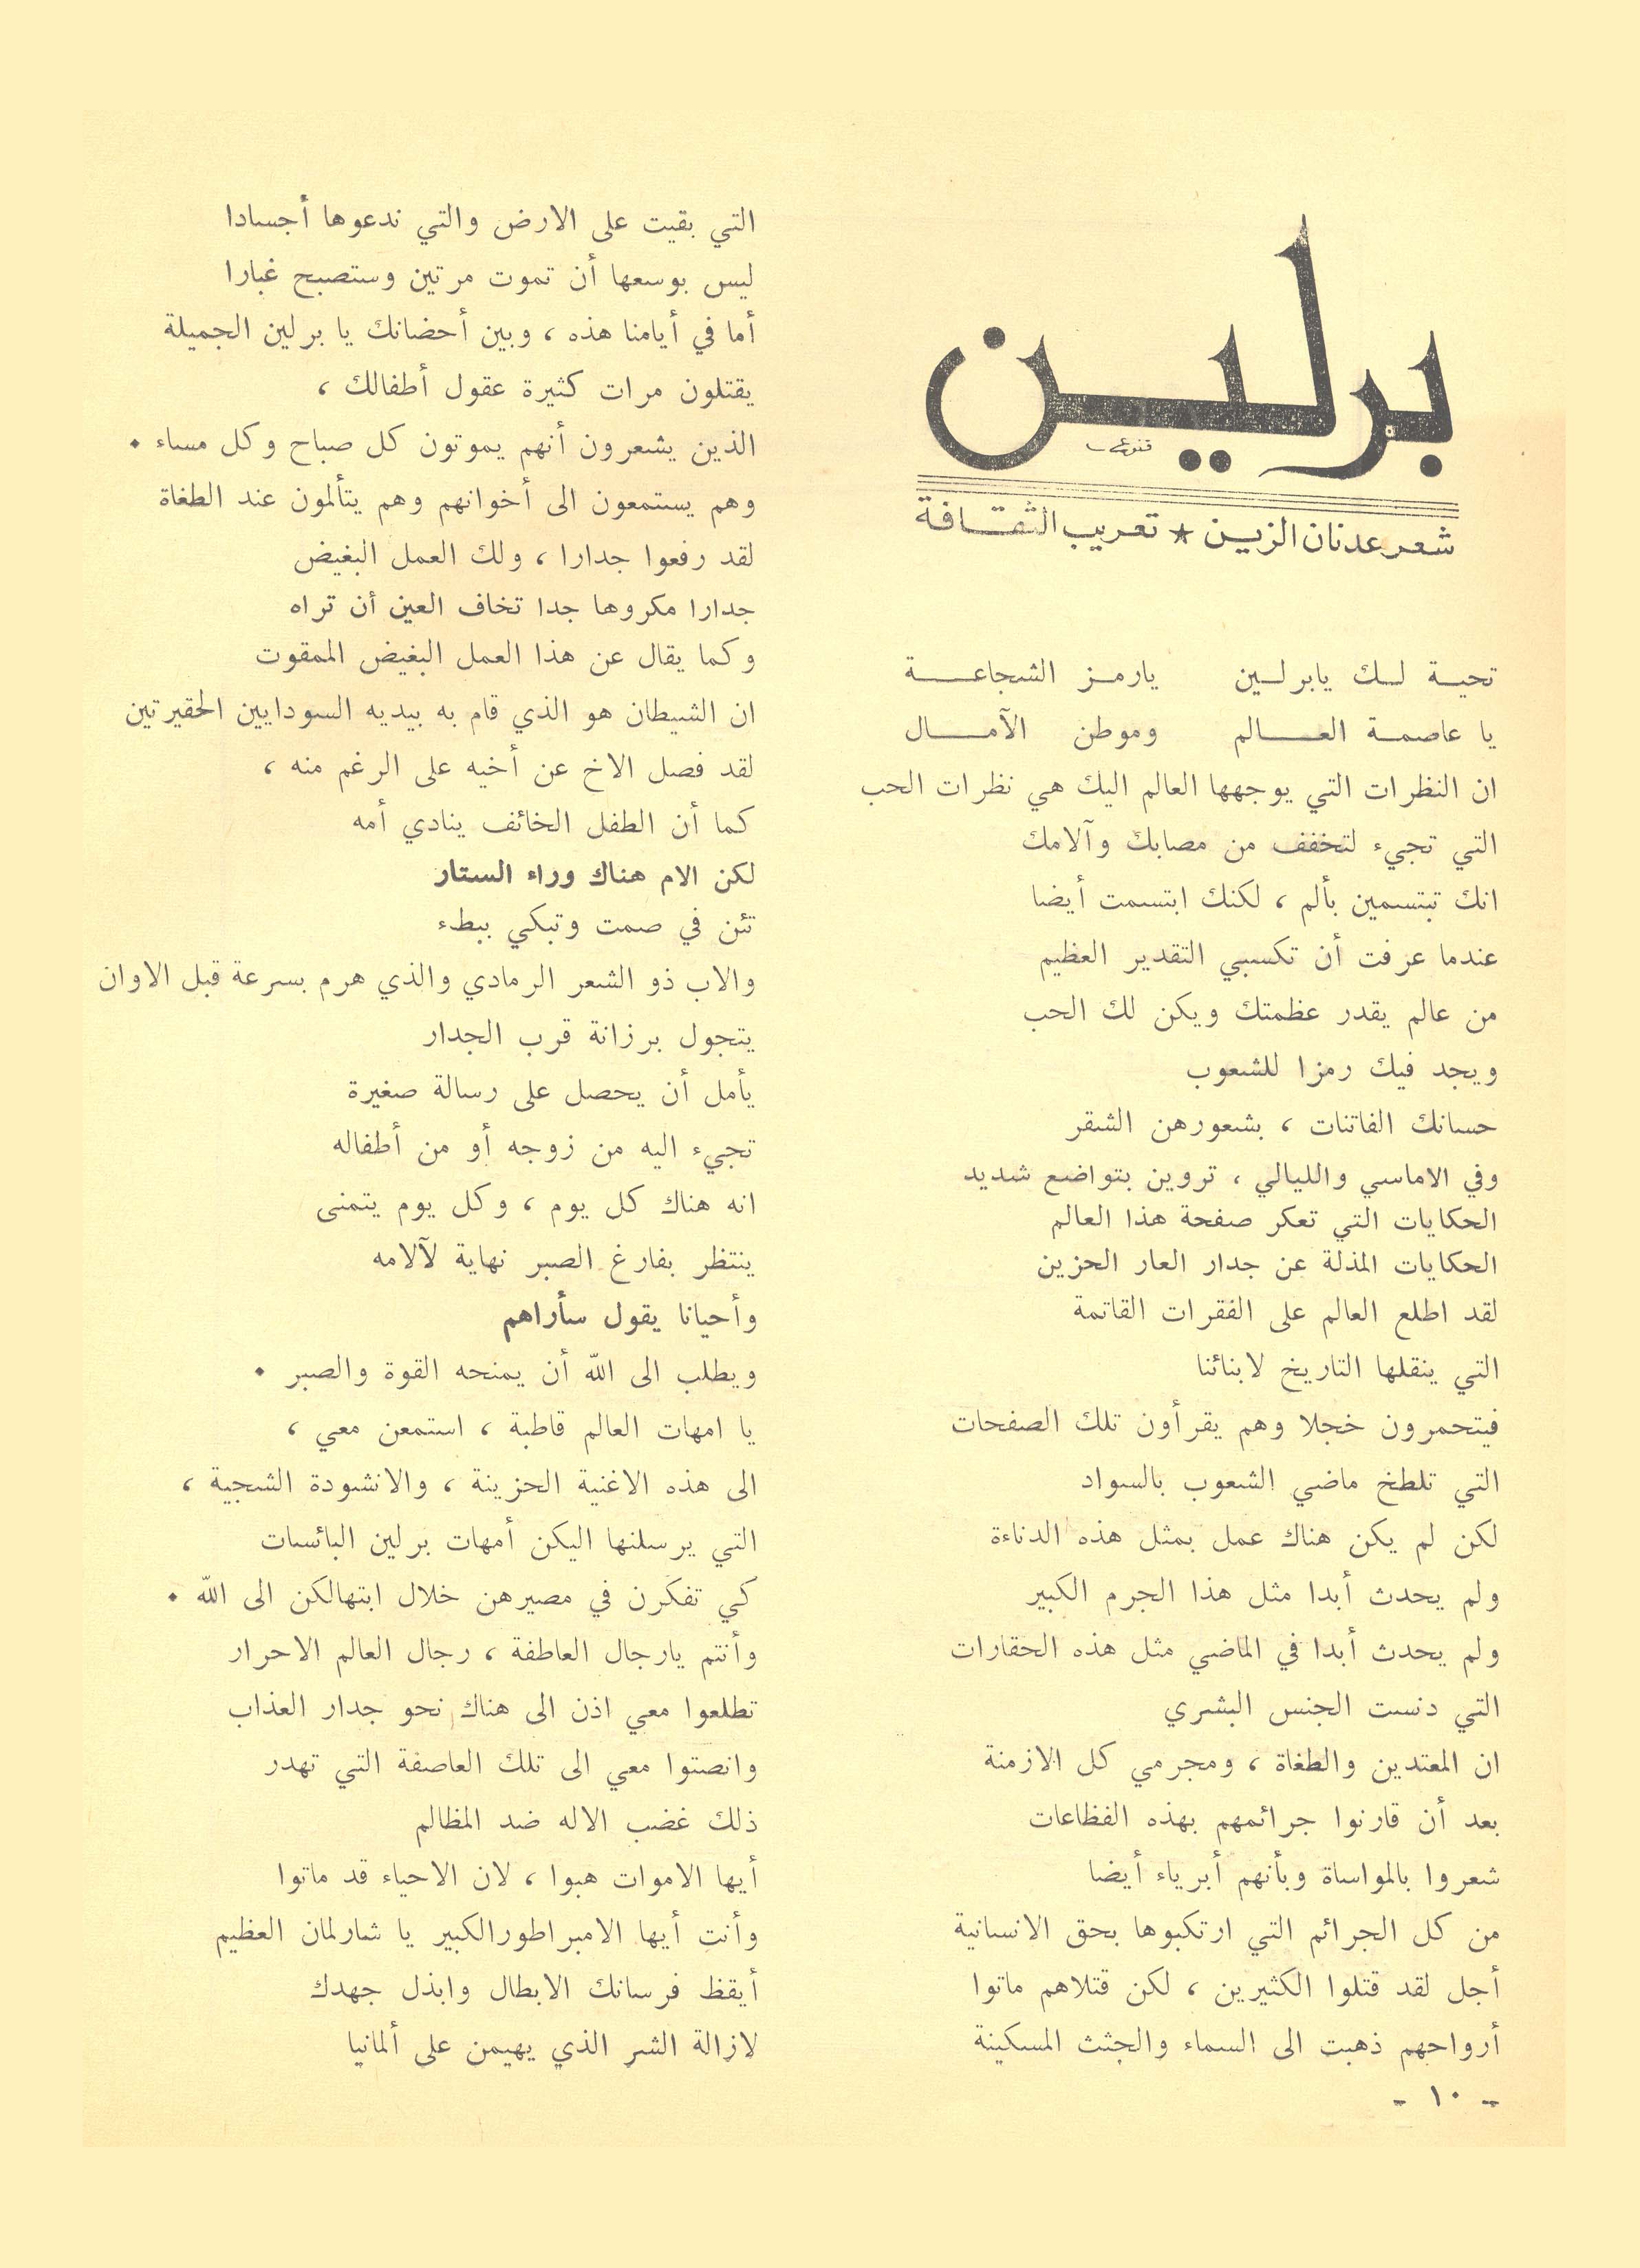 برلين
قنوعي
شعر عدنان الزين ★ تعريب الثقافة
تحية لك يابرلين يارمز الشجاعة
يا عاصمة العالم وموطن الآمال
ان النظرات التي يوجهها العالم اليك هي نظرات الحب
التي تجيء لتخفف من مصابك وآلامك
انك تبتسمين بألم ، لكنك ابتسمت أيضا
عندما عرفت أن تكسبي التقدير العظيم
من عالم يقدر عظمتك ويكن لك الحب
ويجد فيك رمزا للشعوب
حسانك الفاتنات ، بشعورهن الشقر
وفي الاماسي والليالي ، تروين بتواضع شديد
الحكايات التي تعكر صفحة هذا العالم
الحكايات المذلة عن جدار العار الحزين
لقد اطلع العالم على الفقرات القاتمة
التي ينقلها التاريخ لابنائنا
فيتحمرون خجلا وهم يقرأون تلك الصفحات
التي تلطخ ماضي الشعوب بالسواد
لكن لم يكن هناك عمل بمثل هذه الدناءة
ولم يحدث أبدا مثل هذا الجرم الكبير
ولم يحدث أبدا في الماضي مثل هذه الحقارات
التي دنست الجنس البشري
ان المعتدين والطغاة ، ومجرمي كل الازمنة
بعد أن قارنوا جرائمهم بهذه الفظاعات
شعروا بالمواساة وبأنهم أبرياء أيضا
من كل الجرائم التي ارتكبوها بحق الانسانية
أجل لقد قتلوا الكثيرين ، لكن قتلاهم ماتوا
أرواحهم ذهبت الى السماء والجثث المسكينة
- ١٠ -
التي بقيت على الارض والتي ندعوها أجسادا
ليس بوسعها أن تموت مرتين وستصبح غبارا
أما في أيامنا هذه ، وبين أحضانك يا برلين الجميلة
يقتلون مرات كثيرة عقول أطفالك ،
الذين يشعرون أنهم يموتون كل صباح وكل مساء .
وهم يستمعون الى أخوانهم وهم يتألمون عند الطغاة
لقد رفعوا جدارا ، ولك العمل البغيض
جدارا مكروها جدا تخاف العين أن تراه
وكما يقال عن هذا العمل البغيض الممقوت
ان الشيطان هو الذي قام به بيديه السودايين الحقيرتين
لقد فصل الاخ عن أخيه على الرغم منه ،
كما أن الطفل الخائف ينادي أمه
لكن الام هناك وراء الستار
تئن في صمت وتبكي ببطء
والاب ذو الشعر الرمادي والذي هرم بسرعة قبل الاوان
يتجول برزانة قرب الجدار
يأمل أن يحصل على رسالة صغيرة
تجيء اليه من زوجه أو من أطفاله
انه هناك كل يوم ، وكل يوم يتمنى
ينتظر بفارغ الصبر نهاية لآلامه
وأحيانا يقول سأراهم
ويطلب الى الله أن يمنحه القوة والصبر .
يا امهات العالم قاطبة ، استمعن معي ،
الى هذه الاغنية الحزينة ، والانشودة الشجية ،
التي يرسلنها اليكن أمهات برلين البائسات
كي تفكرن في مصيرهن خلال ابتهالكن الى الله .
وأنتم يارجال العاطفة ، رجال العالم الاحرار
تطلعوا معي اذن الى هناك نحو جدار العذاب
وانصتوا معي الى تلك العاصفة التي تهدر
ذلك غضب الاله ضد المظالم
أيها الاموات هبوا ، لان الاحياء قد ماتوا
وأنت أيها الامبراطورالكبير يا شارلمان العظيم
أيقظ فرسانك الابطال وابذل جهدك
لازالة الشر الذي يهيمن على ألمانيا